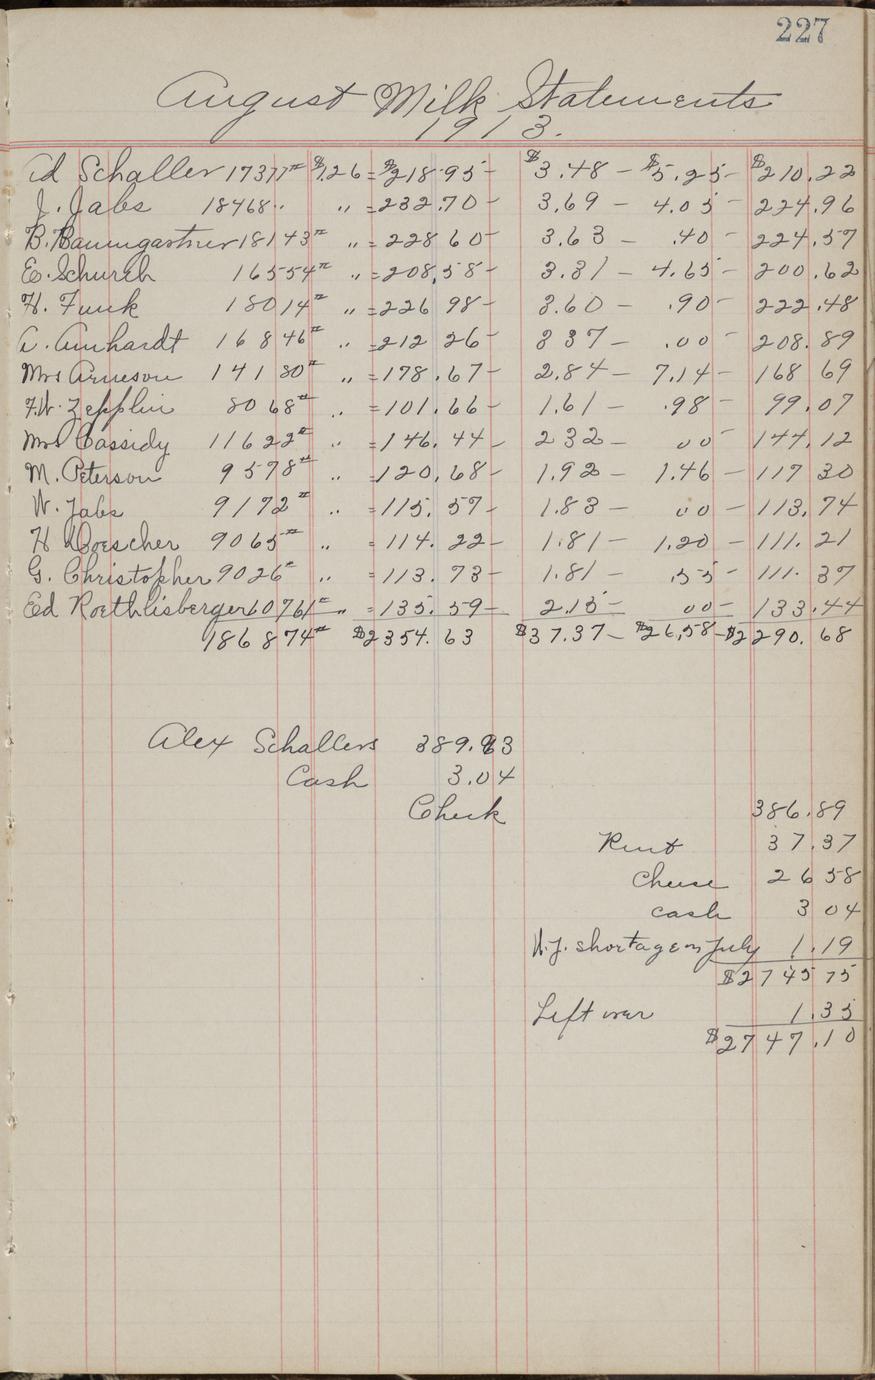 227
August Milk Statements
1913.
Ad Schaller 17377# $1.26 = $218.95 - $3.48 - $5.25 - $210.22
J. Jabs 18468 " " = 232.70 - 3.69 - 4.05 - 224.96
B. Baumgartner 18143# " = 228 60 - 3.63 - .40 - 224.57
E. Schurch 16554# " = 208.58 - 3.31 - 4.65 - 200.62
H. Funk 18014# " = 226 98 - 3.60 - .90 - 222.48
A. Amhardt 16846# " = 212 26 - 3 37 - .00 - 208.89
Mrs Arneson 14180# " = 178.67 - 2.84 - 7.14 - 168 69
F.W. Zepplin 8068# " = 101.66 - 1.61 - .98 - 99.07
Mrs Cassidy 11622# " = 146.44 - 2 32 - 00 - 144.12
M. Peterson 9578# " = 120.68 - 1.92 - 1.46 - 117 30
W. Jabs 9172# " = 115.57 - 1.83 - 00 - 113.74
H Doescher 9065# " = 114.22 - 1.81 - 1.20 - 111.21
G. Christopher 9026# " = 113.73 - 1.81 - .55 - 111.37
Ed Roethlisberger 10761# " = 135.59 - 2.15 - 00 - 133.44
186874# $2354.63 $37.37 - $26.58 - $2290.68
Alex Schallers 389.93
Cash 3.04
Check 386.89
Rent 37.37
Cheese 26 58
cash 3 04
W.J. shortage on July 1.19
$2745 75
Left over 1.35
$2747.10